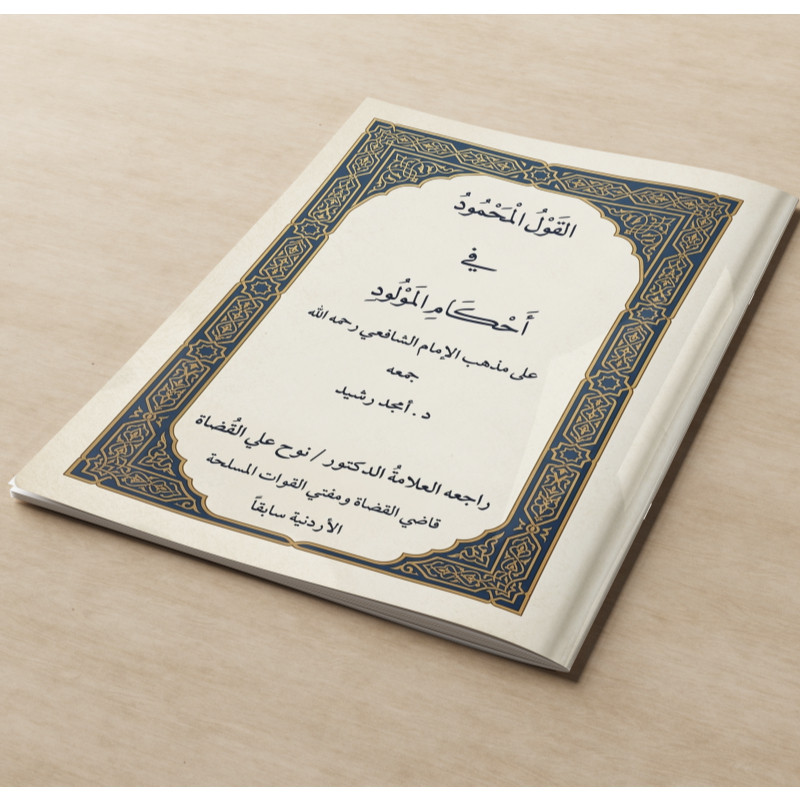 القَوْلُ الْمَحْمُودُ
في
أَحْكَامِ المَوْلُودِ
على مذهب الإمام الشافعي رحمه الله
جمعه
د. أمجد رشيد
راجعه العلامةُ الدكتور / نوح علي القُضاة
قاضي القضاة ومفتي القوات المسلحة
الأردنية سابقاً